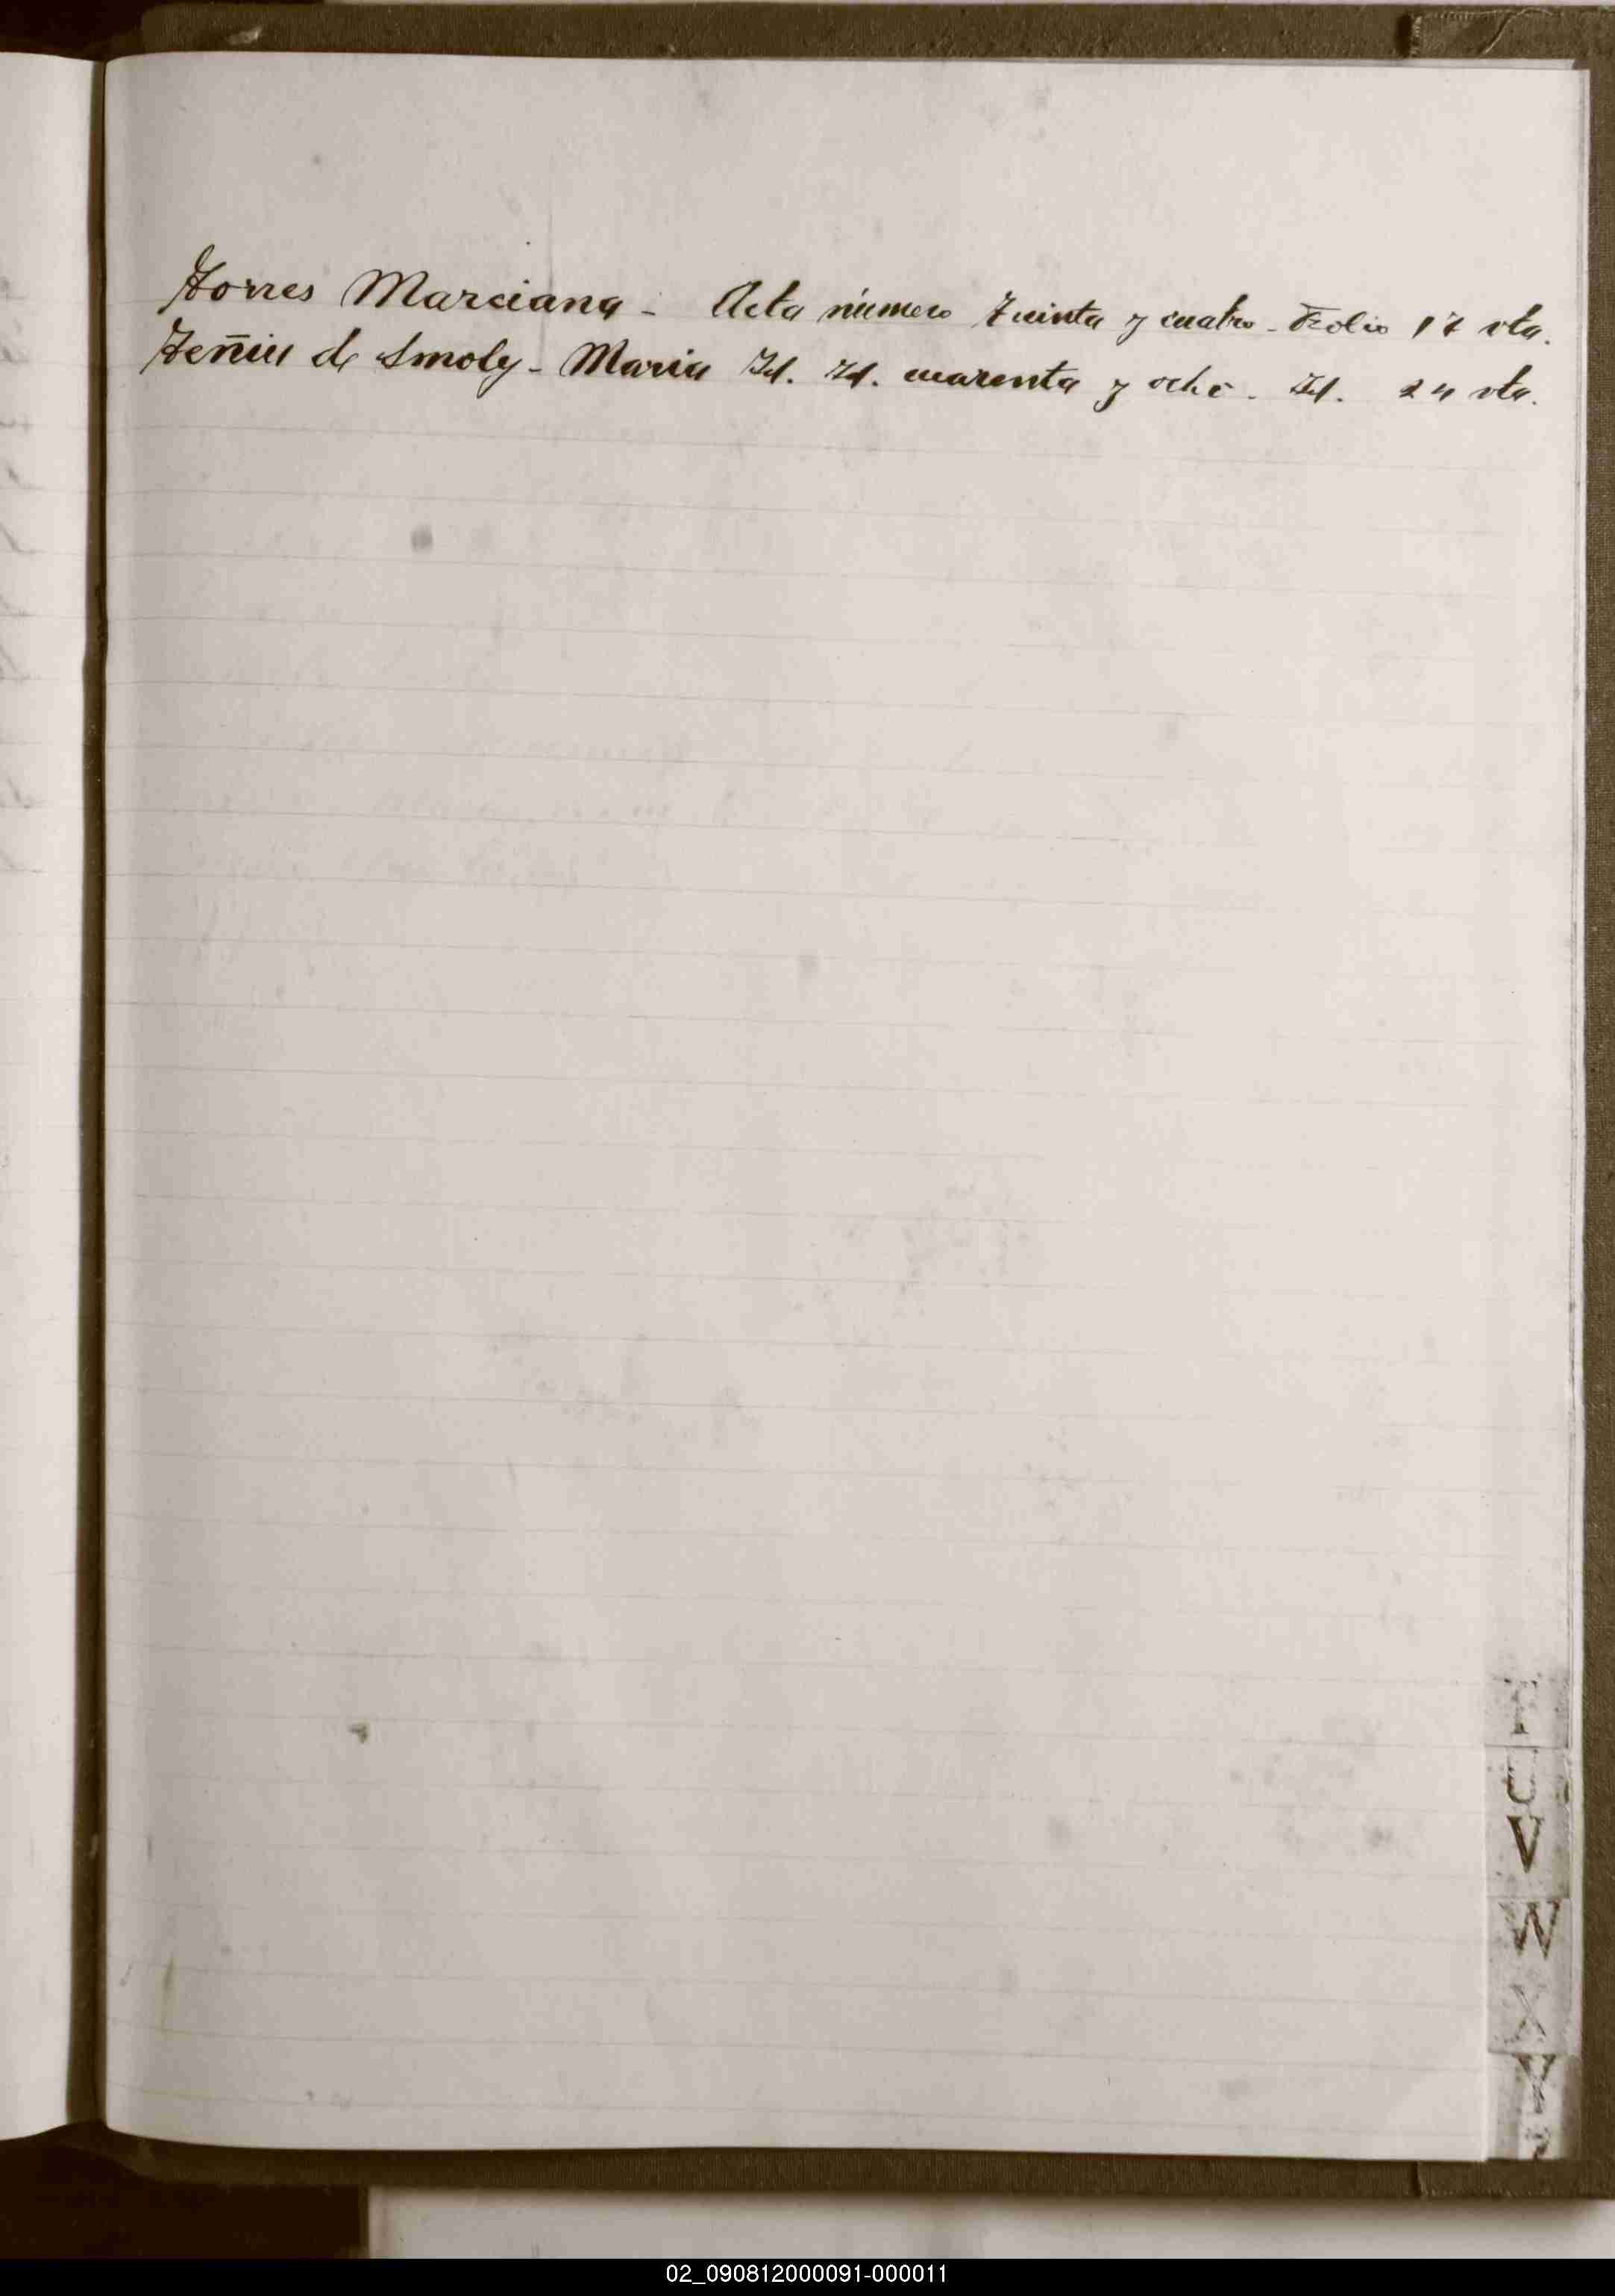 Torres Marciana - Acta número treinta y cuatro - Folio 17 vta.
Teñiu de Smoly - Maria Id. Id. cuarenta y ocho. Id. 24 vta.
T
U
V
W
X
Y
02_090812000091-000011